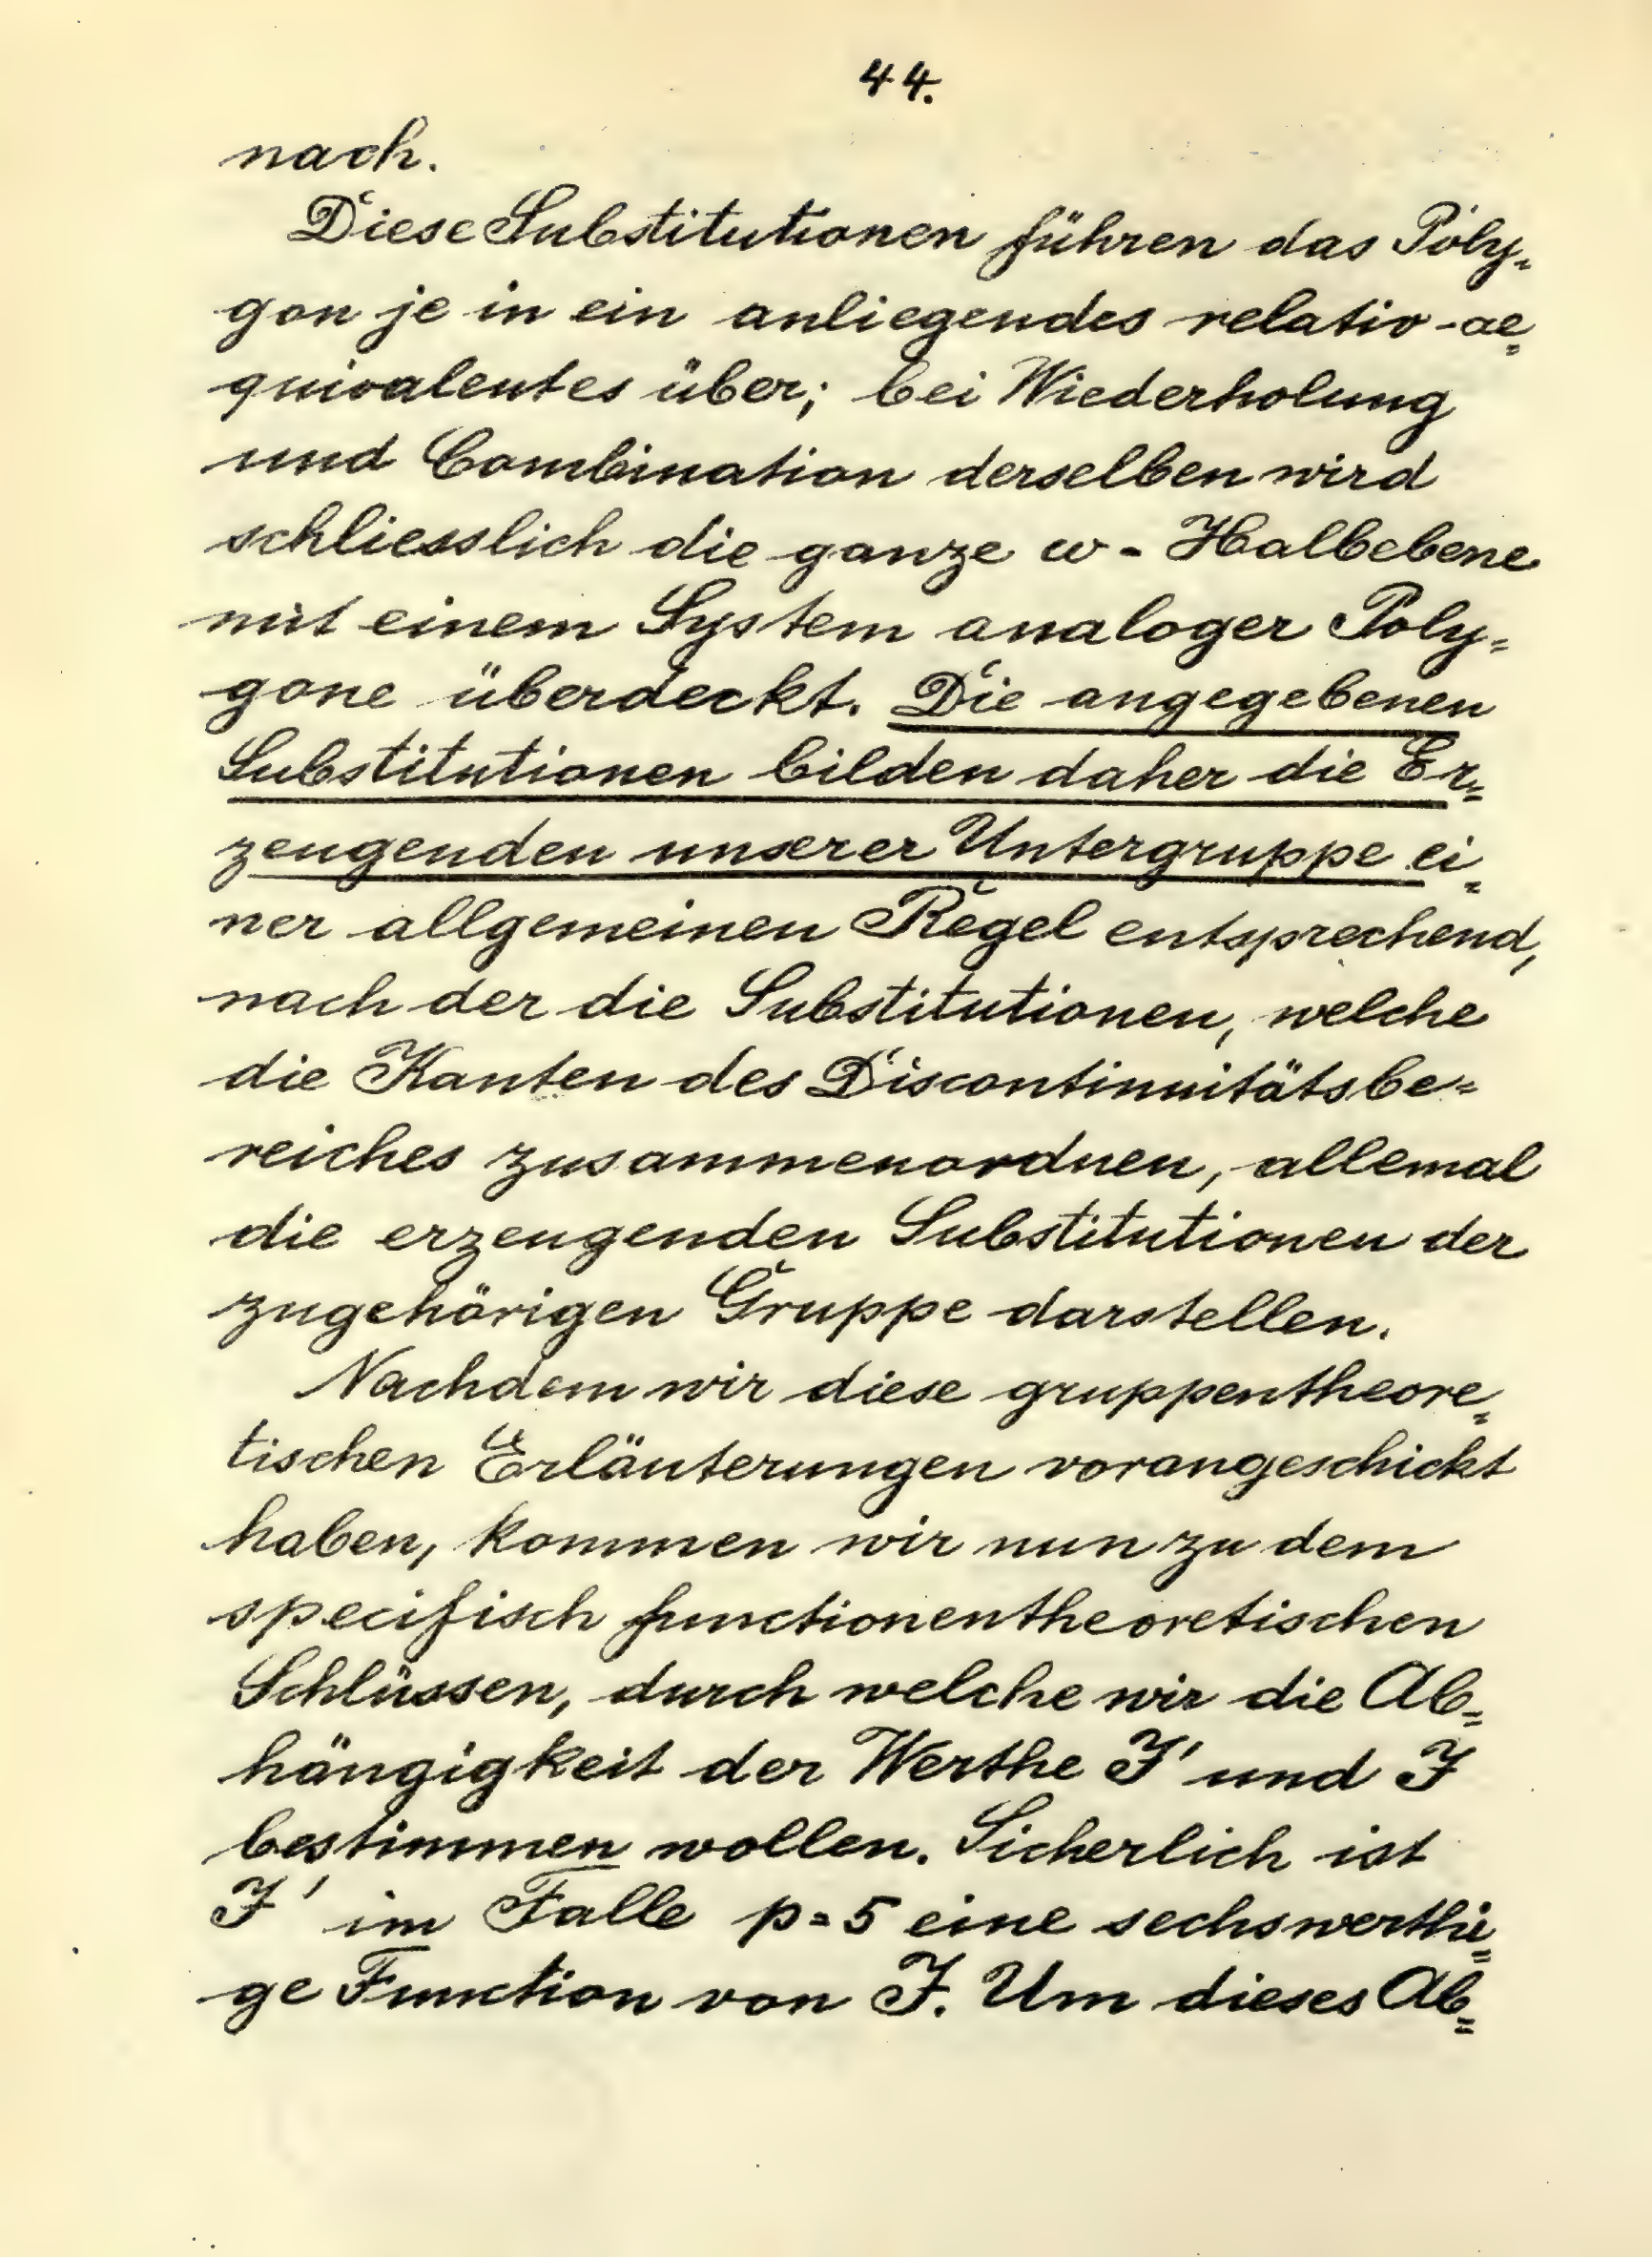 44.
nach.
Diese Substitutionen führen das Poly=
gon je in ein anliegendes relativ-ae=
quivalentes über; bei Wiederholung
und Combination derselben wird
schliesslich die ganze ω-Halbebene
mit einem System analoger Poly=
gone überdeckt. Die angegebenen
Substitutionen bilden daher die Er=
zeugenden unserer Untergruppe ei=
ner allgemeinen Regel entsprechend,
nach der die Substitutionen, welche
die Kanten des Discontinuitätsbe=
reiches zusammenordnen, allemal
die erzeugenden Substitutionen der
zugehörigen Gruppe darstellen.
Nachdem wir diese gruppentheore=
tischen Erläuterungen vorangeschickt
haben, kommen wir nun zu dem
specifisch functionentheoretischen
Schlüssen, durch welche wir die Ab=
hängigkeit der Werthe J' und J
bestimmen wollen. Sicherlich ist
J' im Falle p=5 eine sechswerthi=
ge Function von J. Um dieses Ab=